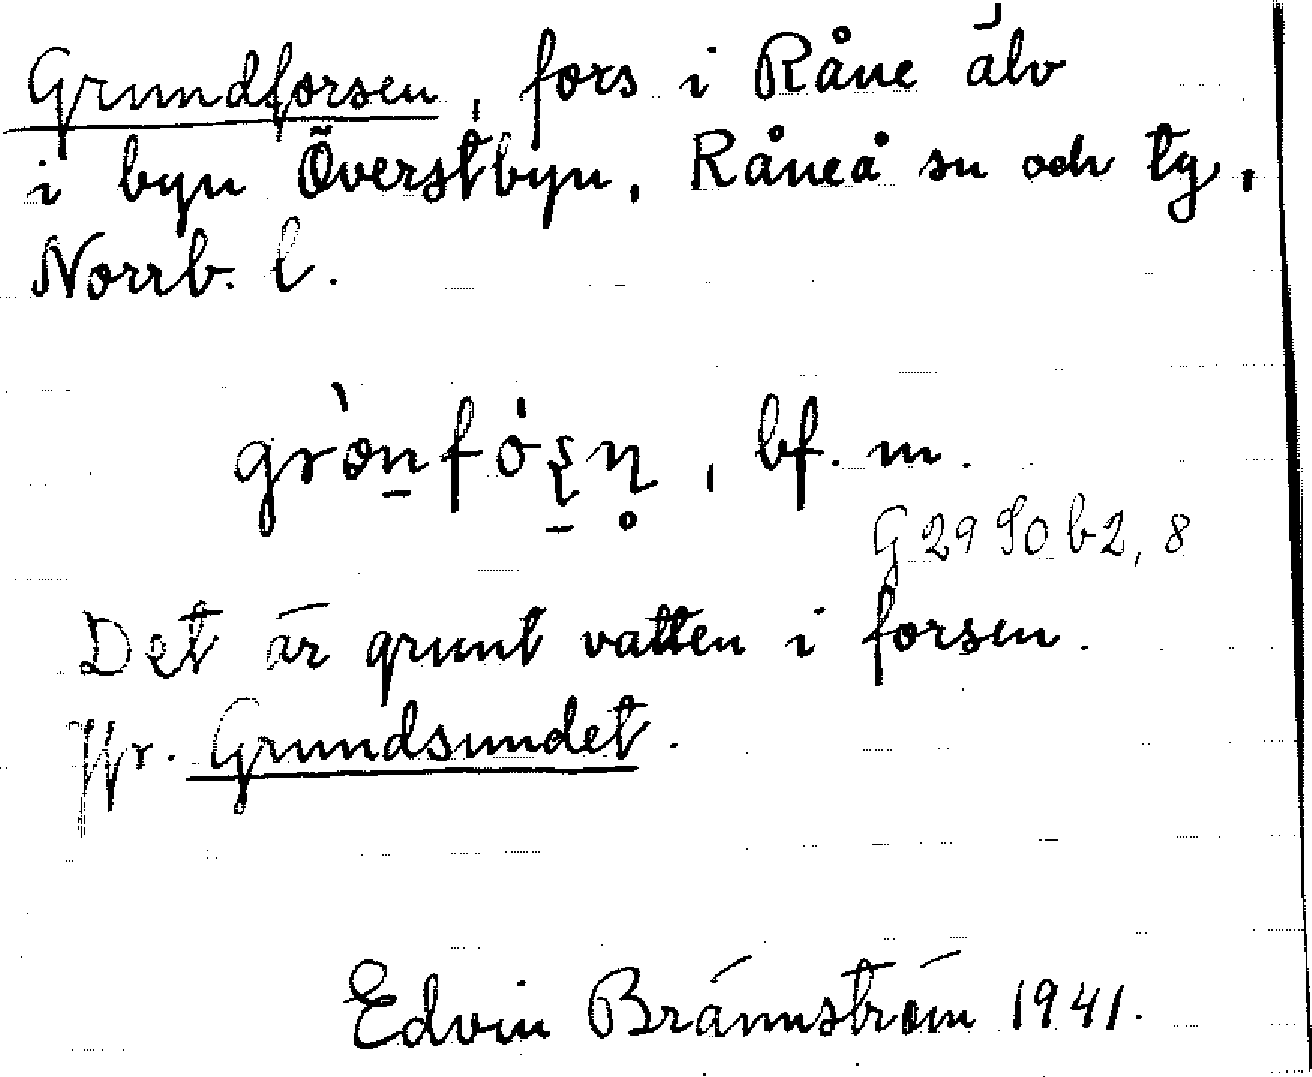 Grundforsen, fors i Råne älv
i byn Överstbyn, Råneå sn och tg,
Norrb. l.
bf. m.
G 29 SO b2, 8
Det är grunt vatten i forsen.
Jfr. Grundsundet.
Edvin Brännström 1941.